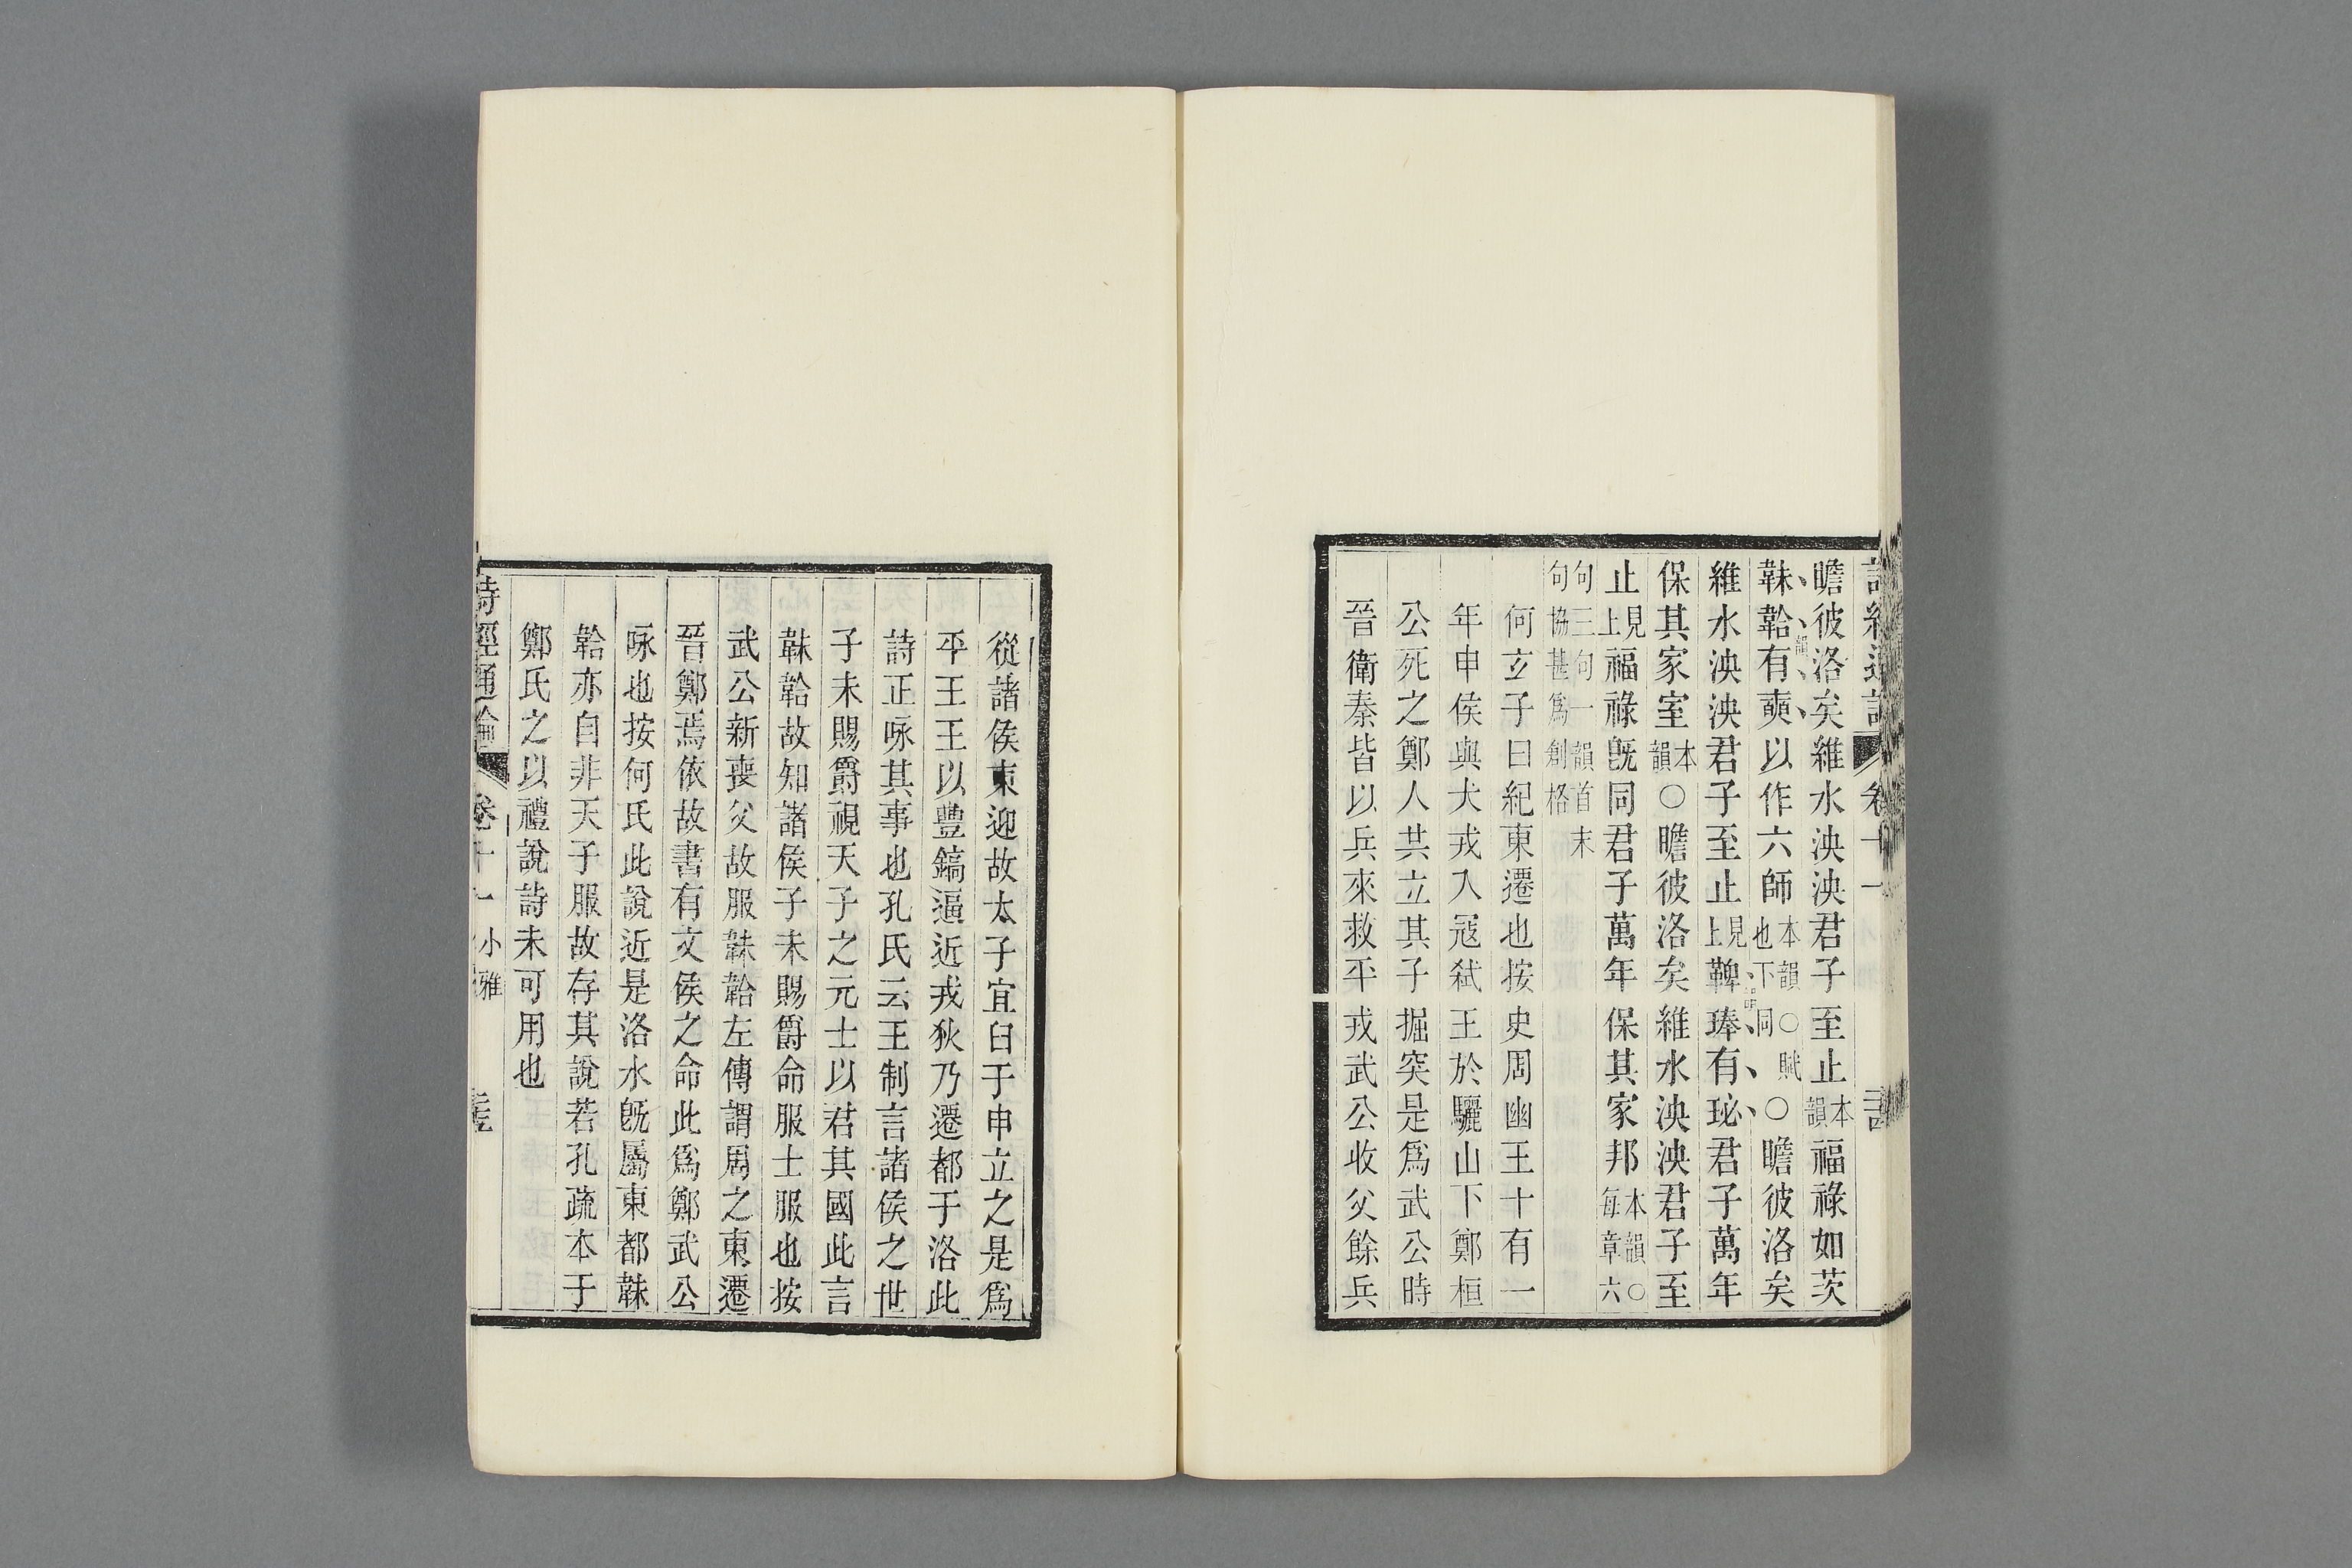 詩經通論 卷十一
瞻彼洛矣維水泱泱君子至止本韻福祿如茨
韎韐有奭以作六師本韻○賦也下同○瞻彼洛矣
維水泱泱君子至止見上鞞琫有珌君子萬年
保其家室本韻○瞻彼洛矣維水泱泱君子至
止見上福祿旣同君子萬年保其家邦本韻○每章六
句三句一韻首末句協甚爲創格
何玄子曰紀東遷也按史周幽王十有一
年申侯與犬戎入寇弑王於驪山下鄭桓
公死之鄭人共立其子掘突是爲武公時
晉衛秦皆以兵來救平戎武公收父餘兵
從諸侯東迎故太子宜臼于申立之是爲
平王王以豐鎬逼近戎狄乃遷都于洛此
詩正咏其事也孔氏云王制言諸侯之世
子未賜爵視天子之元士以君其國此言
韎韐故知諸侯子未賜爵命服士服也按
武公新喪父故服韎韐左傳謂周之東遷
晉鄭焉依故書有文侯之命此爲鄭武公
咏也按何氏此說近是洛水旣屬東都韎
韐亦自非天子服故存其說若孔疏本于
鄭氏之以禮說詩未可用也
詩經通論 卷十一 小雅